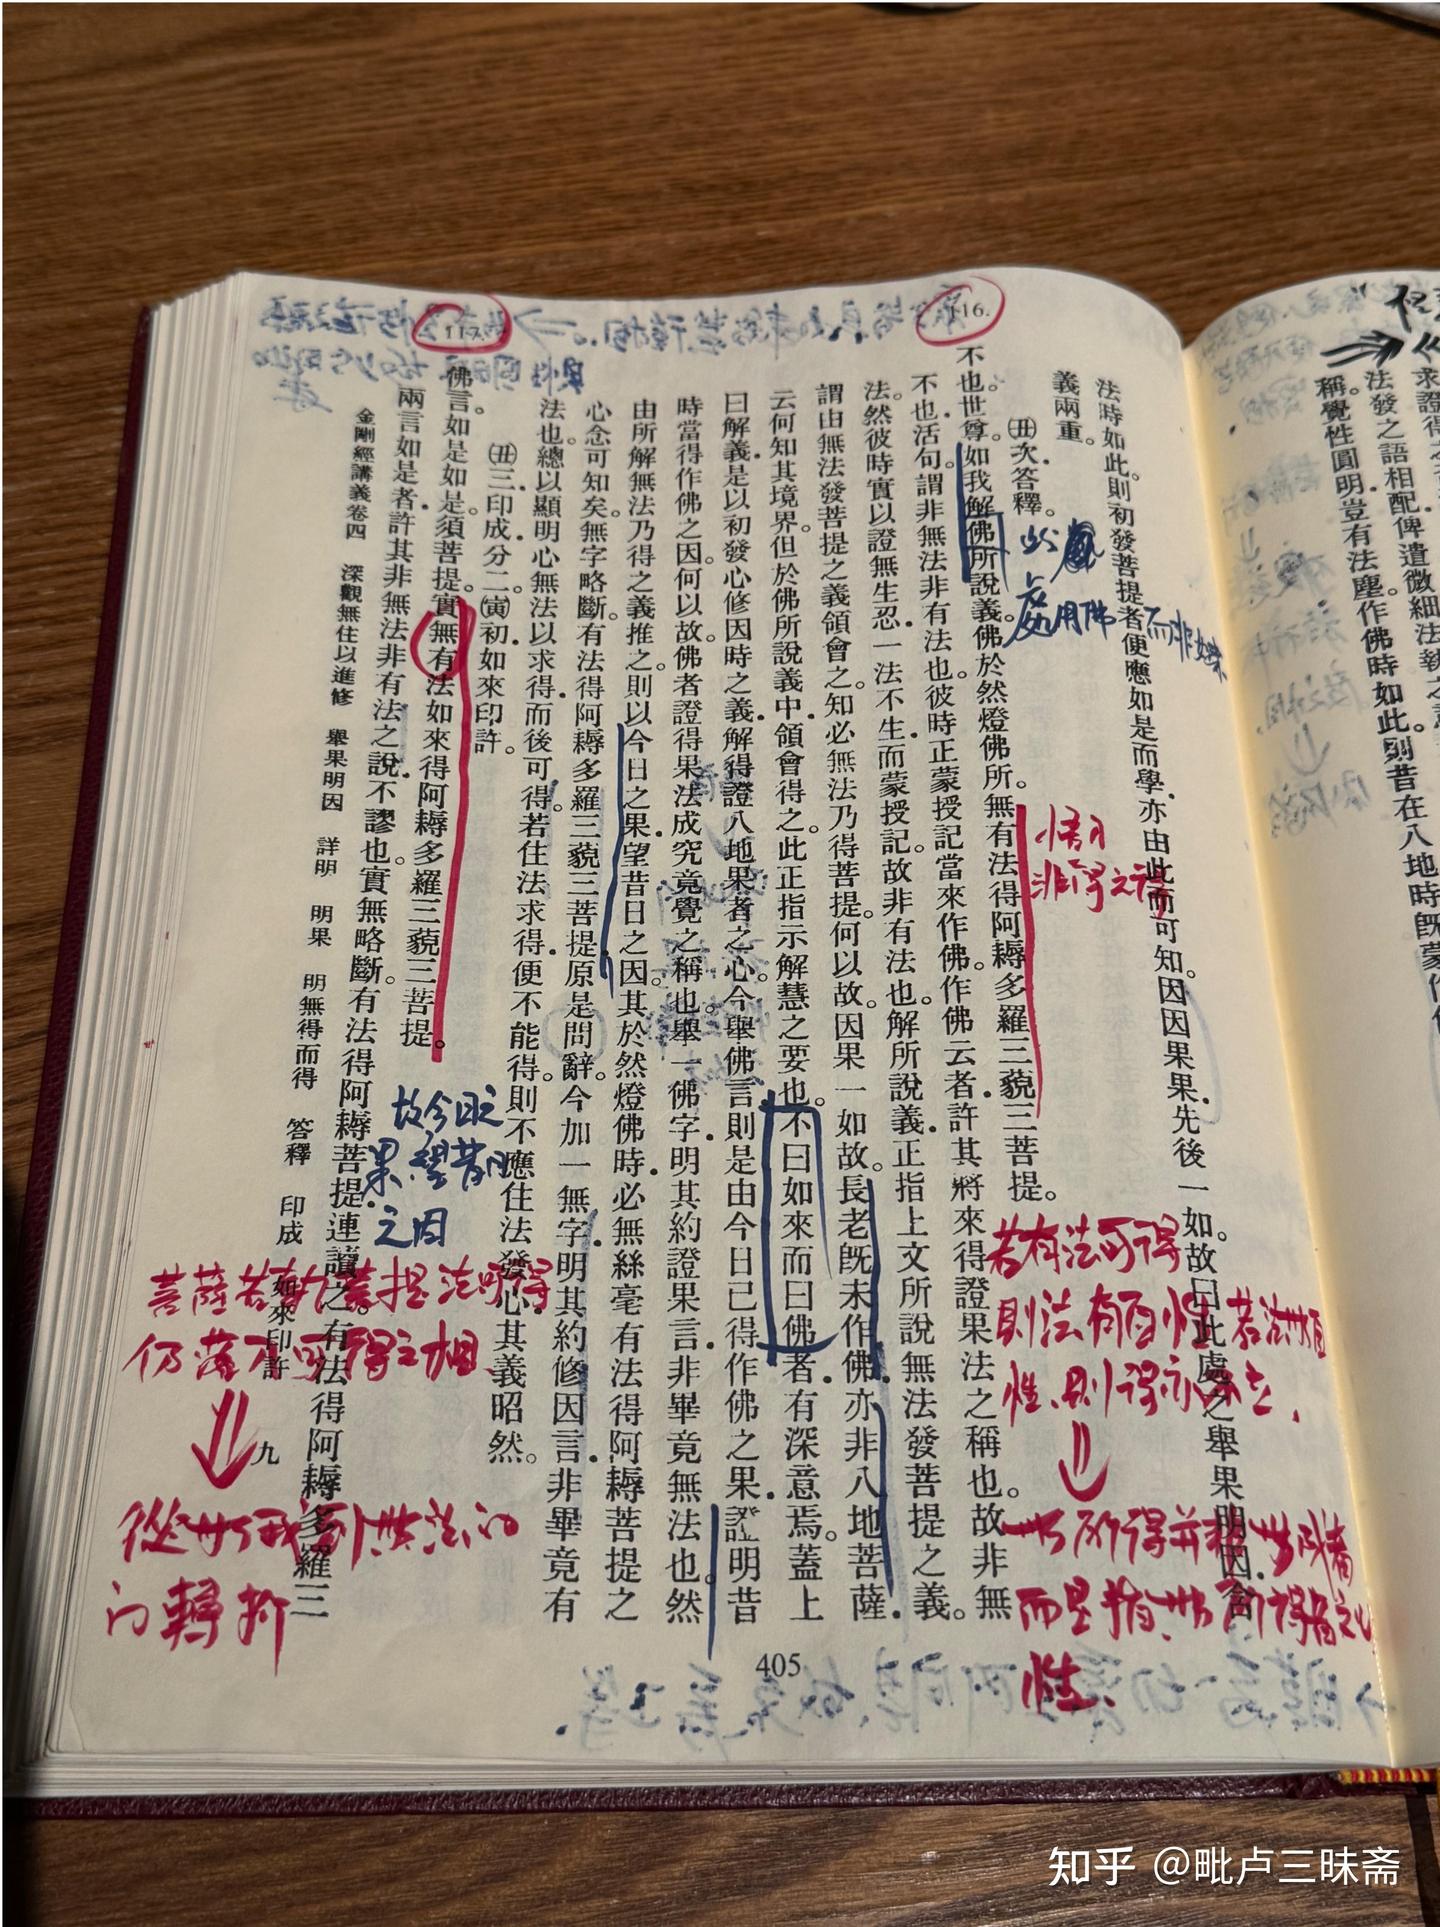 116.
117.
法時如此。則初發菩提者便應如是而學。亦由此而可知。因因果果。先後一如。故曰此處之舉果明因。含
義兩重。
㊄次答釋。
不也。世尊。如我解佛所說義。佛於然燈佛所。無有法得阿耨多羅三藐三菩提。
不也活句。謂非無法非有法也。彼時正蒙授記當來作佛。作佛云者。許其將來得證果法之稱也。故非無
法。然彼時實以證無生忍。一法不生。而蒙授記。故非有法也。解所說義。正指上文所說無法發菩提之義。
謂由無法發菩提之義領會之。知必無法乃得菩提。何以故。因果一如故。長老既未作佛。亦非八地菩薩。
云何知其境界。但於佛所說義中。領會得之。此正指示解慧之要也。不曰如來而曰佛者。有深意焉。蓋上
曰解義。是以初發心修因時之義。解得證八地果者之心。今舉佛言。則是由今日已得作佛之果。證明昔
時當得作佛之因。何以故。佛者證得果法成究竟覺之稱也。舉一佛字。明其約證果言。非畢竟無法也。然
由所解無法乃得之義推之。則以今日之果。望昔日之因。其於然燈佛時。必無絲毫有法得阿耨菩提之
心念可知矣。無字略斷。有法得阿耨多羅三藐三菩提。原是問辭。今加一無字。明其約修因言。非畢竟有
法也。總以顯明心無法以求得。而後可得。若住法求得。便不能得。則不應住法發心。其義昭然。
三印成分二。㊢初。如來印許。
佛言。如是如是。須菩提。實無有法如來得阿耨多羅三藐三菩提。
兩言如是者。許其非無法非有法之說。不謬也。實無略斷。有法得阿耨菩提。連讀之。有法得阿耨多羅三
金剛經講義卷四　深觀無住以進修　舉果明因　詳明　明果　明無得而得　答釋　印成　如來印許　九
405
處用佛而非如來
悟了
非得之得
若有法可得
則法有自性 若法無自
性、則得亦不立、
無所得並非無
而是指無所得者之
性、
故今日之
果望昔日
之因
菩薩若有菩提法可得
仍落不可得之相
從無我到無法的
的轉折
知乎 @毗卢三昧斋